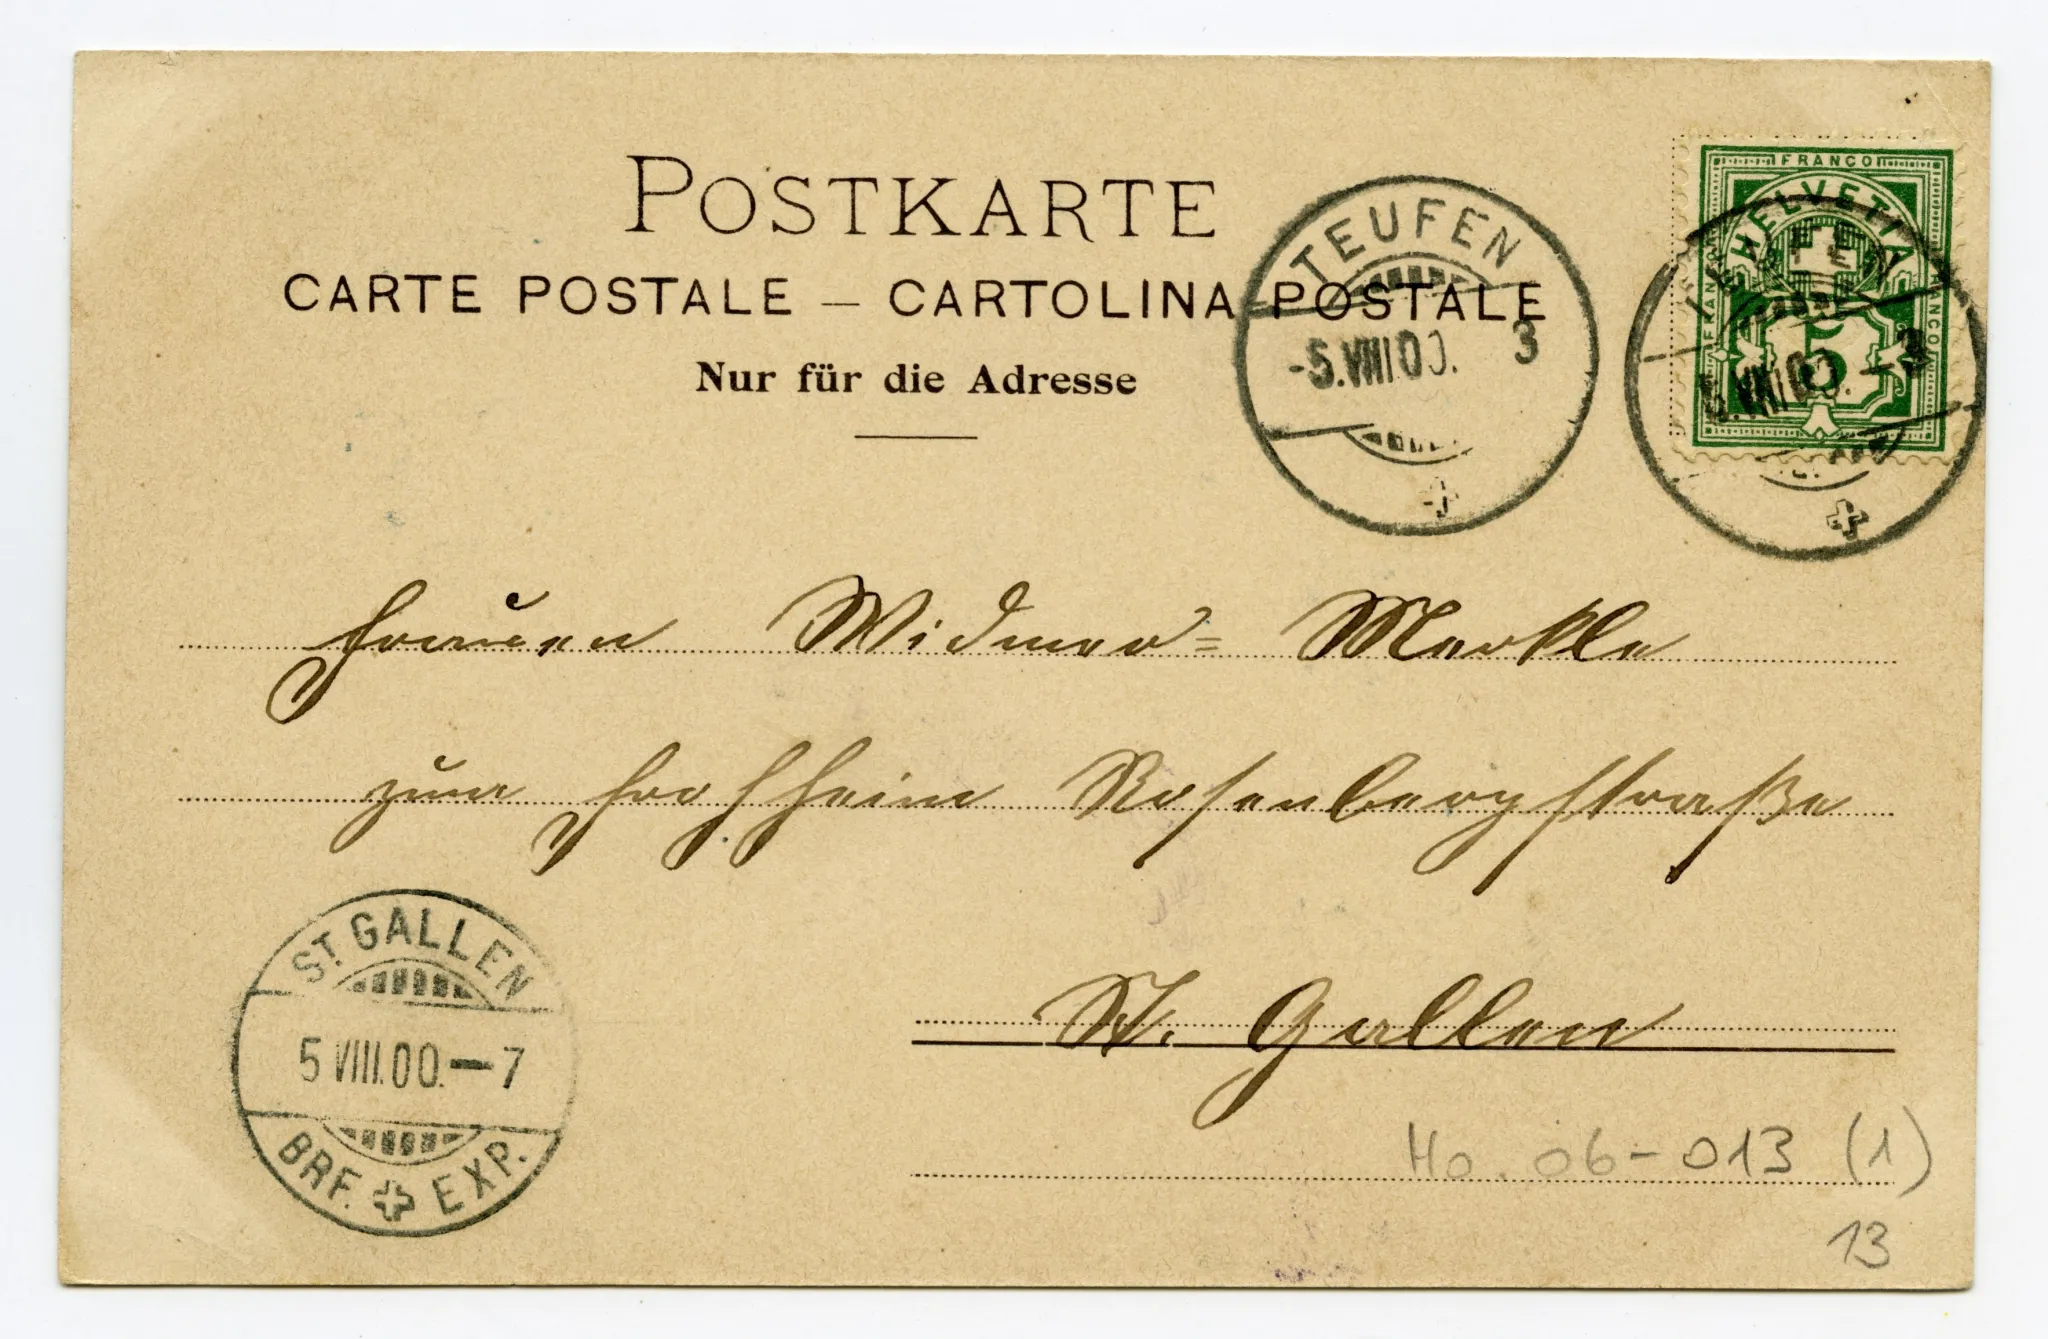 POSTKARTE
CARTE POSTALE – CARTOLINA POSTALE
Nur für die Adresse
TEUFEN
-5.VIII.00. 3
FRANCO
HELVETIA
FRANCO
FRANCO
5
5.VIII.00.-3
Frauen Widmer= Merkle
zum Frohheim Rosenbergstraße
St. Gallen
ST. GALLEN
5 VIII.00.-7
BRF. EXP.
Ho. 06-013 (1)
13